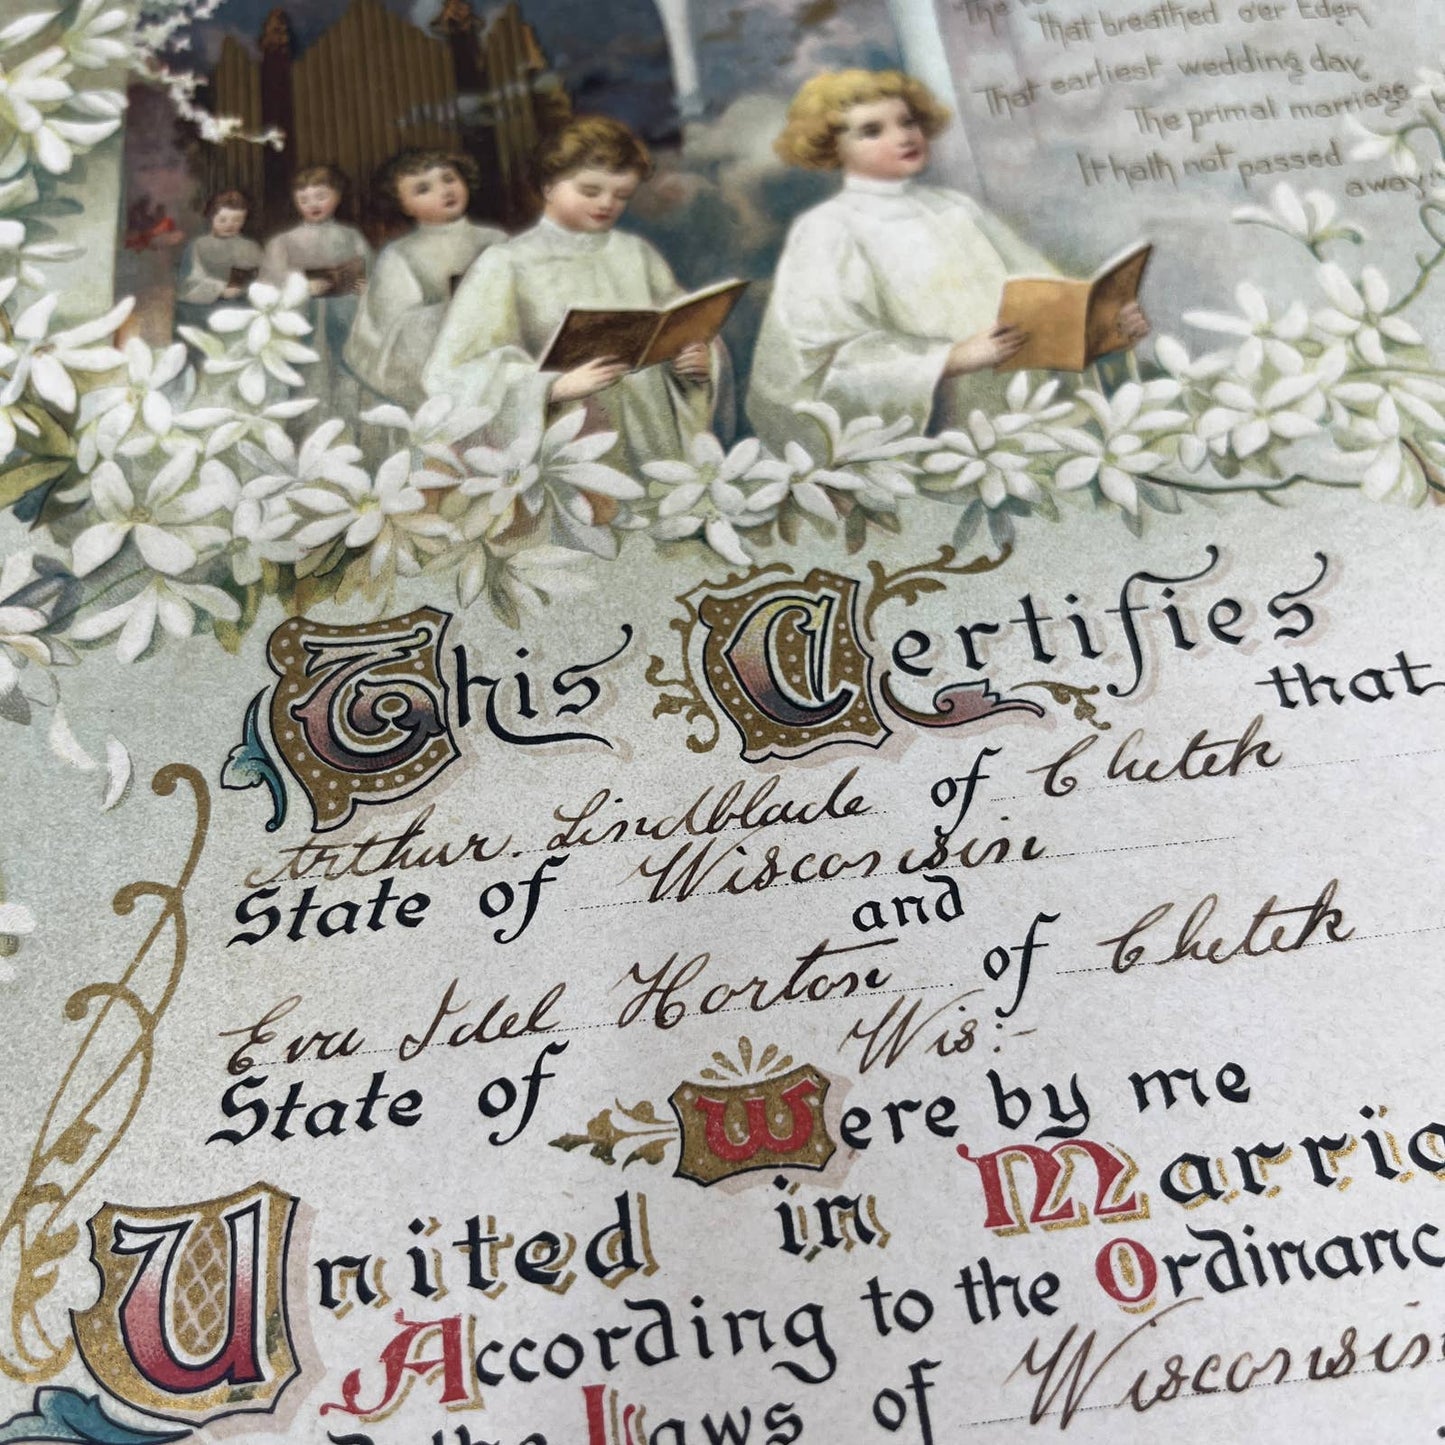 The
that breathed o'er Eden
That earliest wedding day,
The primal marriage
It hath not passed
away.
This Certifies
that
Arthur. Lindblade of Chetek
State of Wisconsin
and
Eva Idel Horton of Chetek
State of Wis:-
Were by me
United in
According to the
Laws of Wisconsin